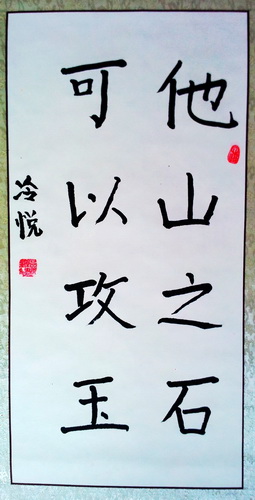 他山之石
可以攻玉
冷悦